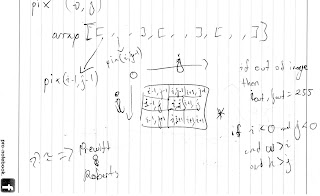 pix (0,0)
array [[ , , ], [ , , ], [ , , ]]
pix(i-1,j-1)
pix(i,j-1)
j
O
i
i-1,j-1 i,j-1 i+1,j-1
i-1,j i,j i+1,j
i-1,j+1 i,j+1 i+1,j+1
*
if out of image
then
out, out = 255
if i<0 and j<0
and w>i
and h>j
=> Prewitt
&
Roberts
pro-notebook.
f